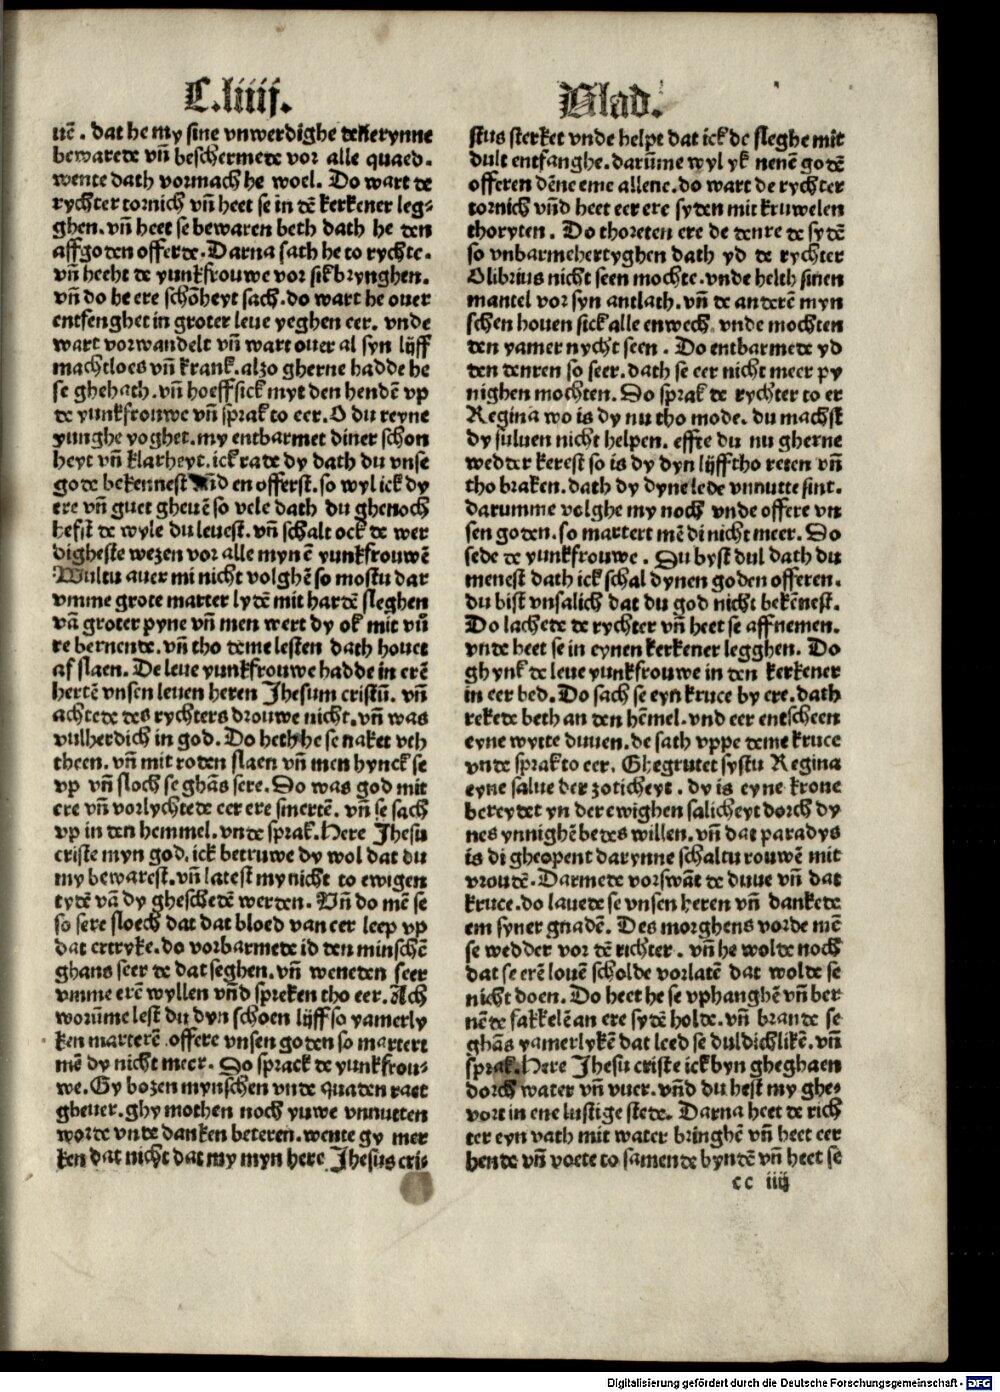 C.liiij. Blad.
uē. dat he my sine vnwerdighe dekerynne
bewarede vn̄ beschermede vor alle quaed.
wente dath vormach he woel. Do wart de
rychter tornich vn̄ heet se in dē kerkener leg-
ghen. vn̄ heet se bewaren beth dath he den
affgoden offerde. Darna sath he to rychte.
vn̄ heeht de yunkfrouwe vor sik brynghen.
vn̄ do he ere schōheyt sach. do wart he ouer
entfenghet in groter leue yeghen eer. vnde
wart vorwandelt vn̄ wart ouer al syn lijff
machtloes vn̄ krank. alzo gherne hadde he
se ghehath. vn̄ hoeff sick myt den hendē vp
de yunkfrouwe vn̄ sprak to eer. O du reyne
yunghe yoghet. my entbarmet diner schon
heyt vn̄ klarheyt. ick rade dy dath du vnse
gode bekennest vnd en offerst. so wyl ick dy
ere vn̄ guet gheuē so vele dath du ghenoch
hefst de wyle du leuest. vn̄ schalt ock de wer
digheste wezen vor alle mynē yunkfrouwē
Wultu auer mi nicht volghē so mostu dar
vmme grote marter lydē mit hardē sleghen
vā groter pyne vn̄ men wert dy ok mit vū
re bernende. vn̄ tho deme lesten dath houet
af slaen. De leue yunkfrouwe hadde in erē
hertē vnsen leuen heren Jhesum cristū. vn̄
achtede des rychters drouwe nicht. vn̄ was
vulherdich in god. Do heth he se naket vth
theen. vn̄ mit roden slaen vn̄ men hynck se
vp vn̄ sloch se ghās sere. Do was god mit
ere vn̄ vorlychtede eer ere smertē. vn̄ se sach
vp in den hemmel. vnde sprak. Here Jhesu
criste myn god. ick betruwe dy wol dat du
my bewarest. vn̄ latest my nicht to ewigen
tydē vā dy ghescheдē werden. Vn̄ do mē se
so sere sloech dat dat bloed van eer leep vp
dat ertryke. do vorbarmede id den minschē
ghans seer de dat seghen. vn̄ weneden seer
vmme erē wyllen vn̄d spreken tho eer. Ach
worūme lest du dyn schoen lijff so yamerly
ken marterē. offere vnsen goden so martert
mē dy nicht meer. Do sprack de yunkfrou-
we. Gy bozen mynschen vnde quaden raet
gheuer. ghy mothen noch yuwe vnnutten
worde vnde danken beteren. wente gy mer
ken dat nicht dat my myn here Jhesus cri-
stus sterket vnde helpt dat ick de sleghe mit
dult entfanghe. darūme wyl yk nenē godē
offeren dēne eme allene. do wart de rychter
tornich vn̄d heet eer ere syden mit kruwelen
thoryten. Do thoreten ere de denre de sydē
so vnbarmehertyghen dath yd de rychter
Olibrius nicht seen mochte. vnde helth sinen
mantel vor syn antlath. vn̄ de anderē myn
schen houen sick alle enwech. vnde mochten
den yamer nycht seen. Do entbarmede yd
den denren so seer. dath se eer nicht meer py
nighen mochten. Do sprak de rychter to er
Regina wo is dy nu tho mode. du machst
dy suluen nicht helpen. effte du nu gherne
wedder kerest so is dy dyn lijff tho reten vn̄
tho braken. dath dy dyne lede vnnutte sint.
darumme volghe my noch vnde offere vn
sen goden. so martert mē di nicht meer. Do
sede de yunkfrouwe. Du byst dul dath du
menest dath ick schal dynen goden offeren.
du bist vnsalich dat du god nicht bekēnest.
Do lachede de rychter vn̄ heet se aff nemen.
vnde heet se in eynen kerkener legghen. Do
ghynk de leue yunkfrouwe in den kerkener
in eer bed. Do sach se eyn kruce by ere. dath
rekede beth an den hēmel. vnd eer entscheen
eyne wytte duuen. de sath vppe deme kruce
vnde sprak to eer. Ghegrutet systu Regina
eyne salue der zoticheyt. dy is eyne krone
bereydet yn der ewighen salicheyt dorch dy
nes ynnighē bedes willen. vn̄ dat paradys
is di gheopent darynne schaltu rouwē mit
vroudē. Darmede vorswāt de duue vn̄ dat
kruce. do lauede se vnsen heren vn̄ dankede
em syner gnadē. Des morghens vorde mē
se wedder vor dē richter. vn̄ he wolde noch
dat se erē louē scholde vorlatē dat wolde se
nicht doen. Do heet he se vphanghē vn̄ ber
nēde fakkelē an ere sydē holde. vn̄ brande se
ghās yamerlykē dat leed se duldichlikē. vn̄
sprak. Here Jhesu criste ick byn gheghaen
dorch water vn̄ vuer. vn̄d du hest my ghe-
vort in ene lustige stede. Darna heet de rich
ter eyn vath mit water bringhē vn̄ heet eer
hende vn̄ voete to samende byndē vn̄ heet se
cc iiij
Digitalisierung gefördert durch die Deutsche Forschungsgemeinschaft - DFG